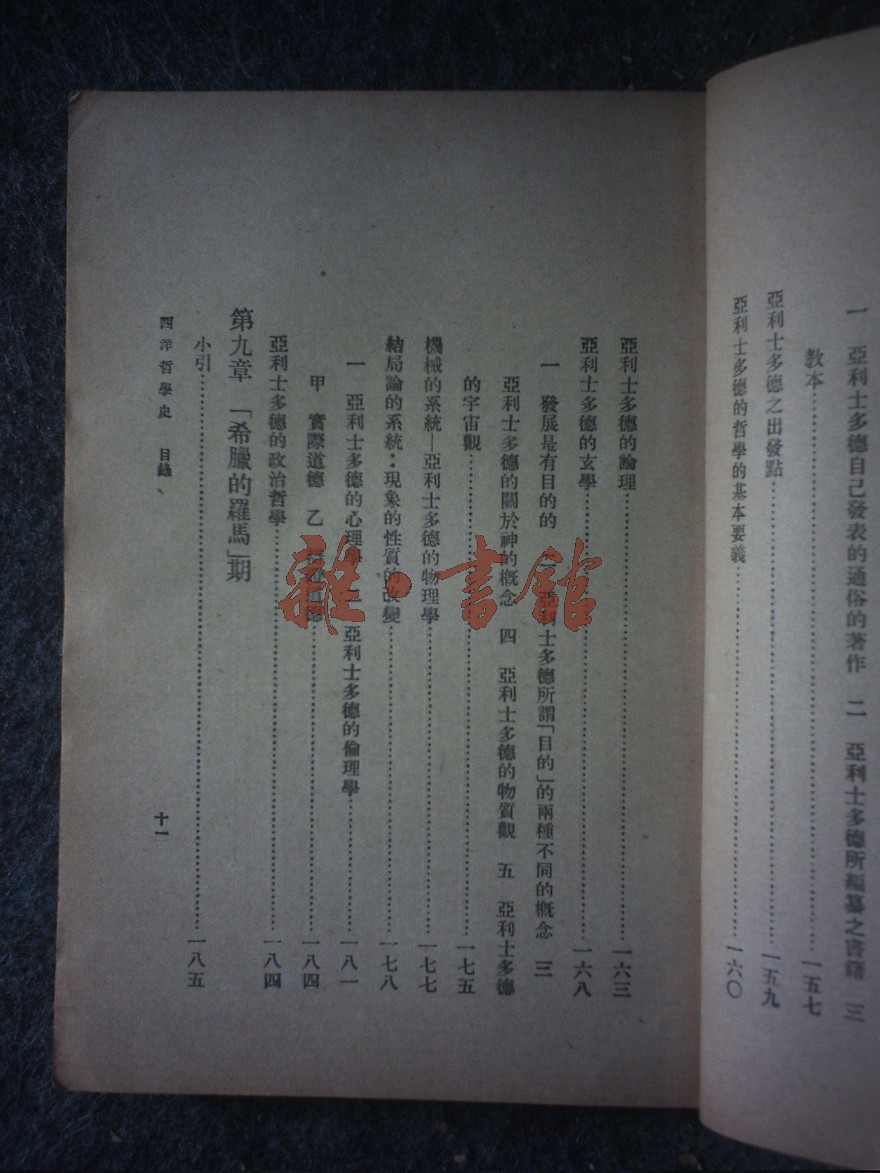 一 亞利士多德自己發表的通俗的著作 二 亞利士多德所編纂之書籍 三
教本……一五七
亞利士多德之出發點……一五九
亞利士多德的哲學的基本要義……一六〇
亞利士多德的論理……一六三
亞利士多德的玄學……一六八
一 發展是有目的的 二 亞利士多德所謂「目的」的兩種不同的概念 三
亞利士多德的關於神的概念 四 亞利士多德的物質觀 五 亞利士多德
的宇宙觀……一七五
機械的系統—亞利士多德的物理學……一七七
結局論的系統：現象的性質的改變……一七八
一 亞利士多德的心理學 二 亞利士多德的倫理學……一八一
甲 實際道德 乙 道德……一八四
亞利士多德的政治哲學……一八四
第九章 「希臘的羅馬」期
小引……一八五
西洋哲學史 目錄 十一
雜·書館